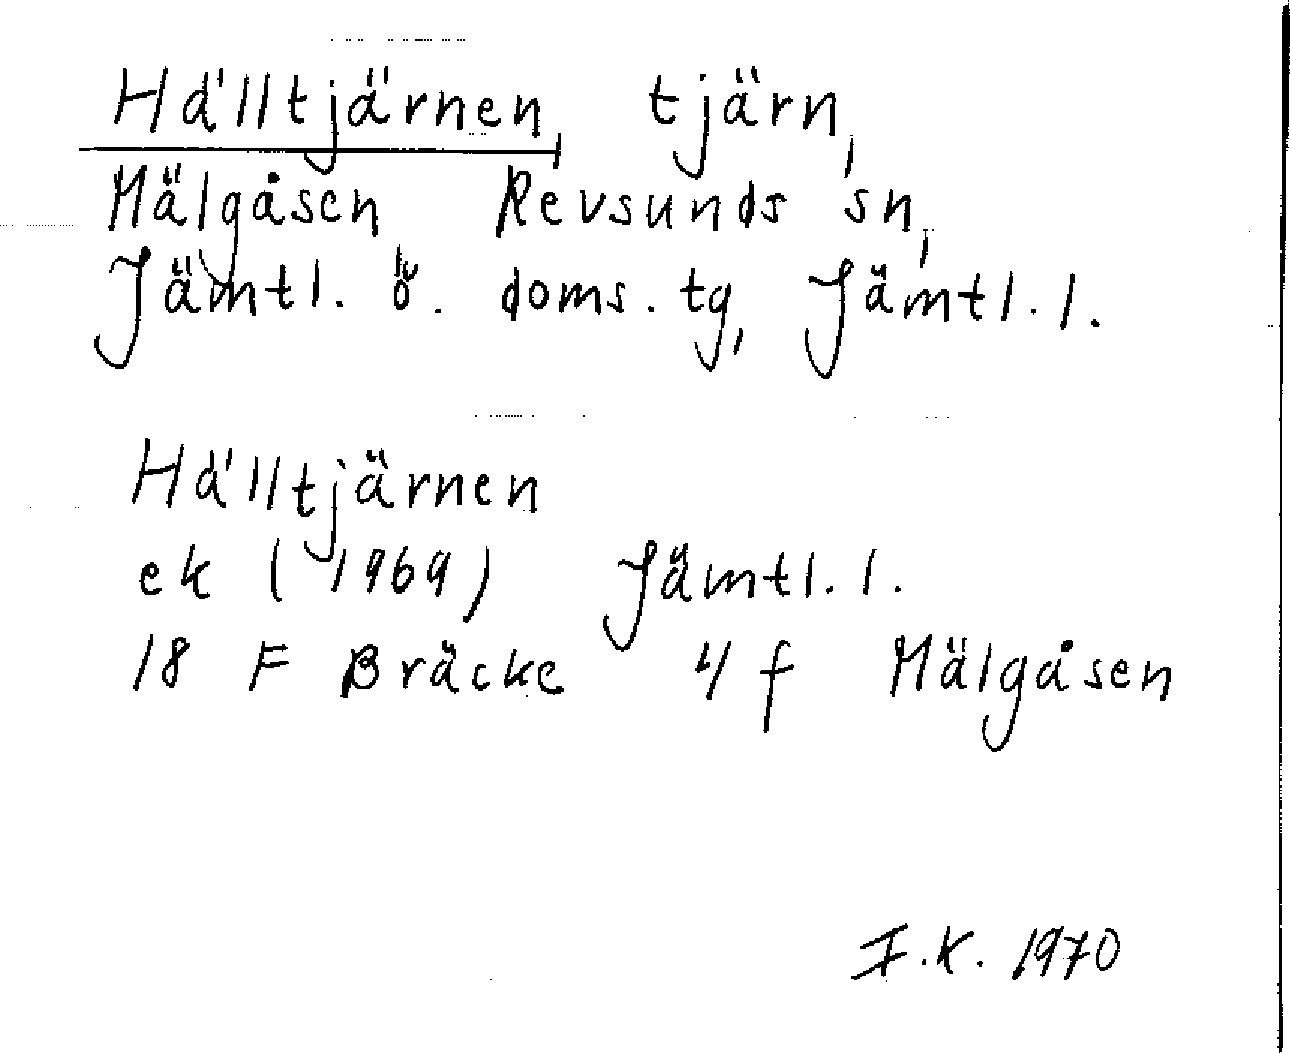 Hälltjärnen, tjärn,
Mälgåsen Revsunds sn,
Jämtl. ö. doms. tg, Jämtl. l.
Hälltjärnen
ek (1969) Jämtl. l.
18 F Bräcke 4 f Mälgåsen
I.K. 1970